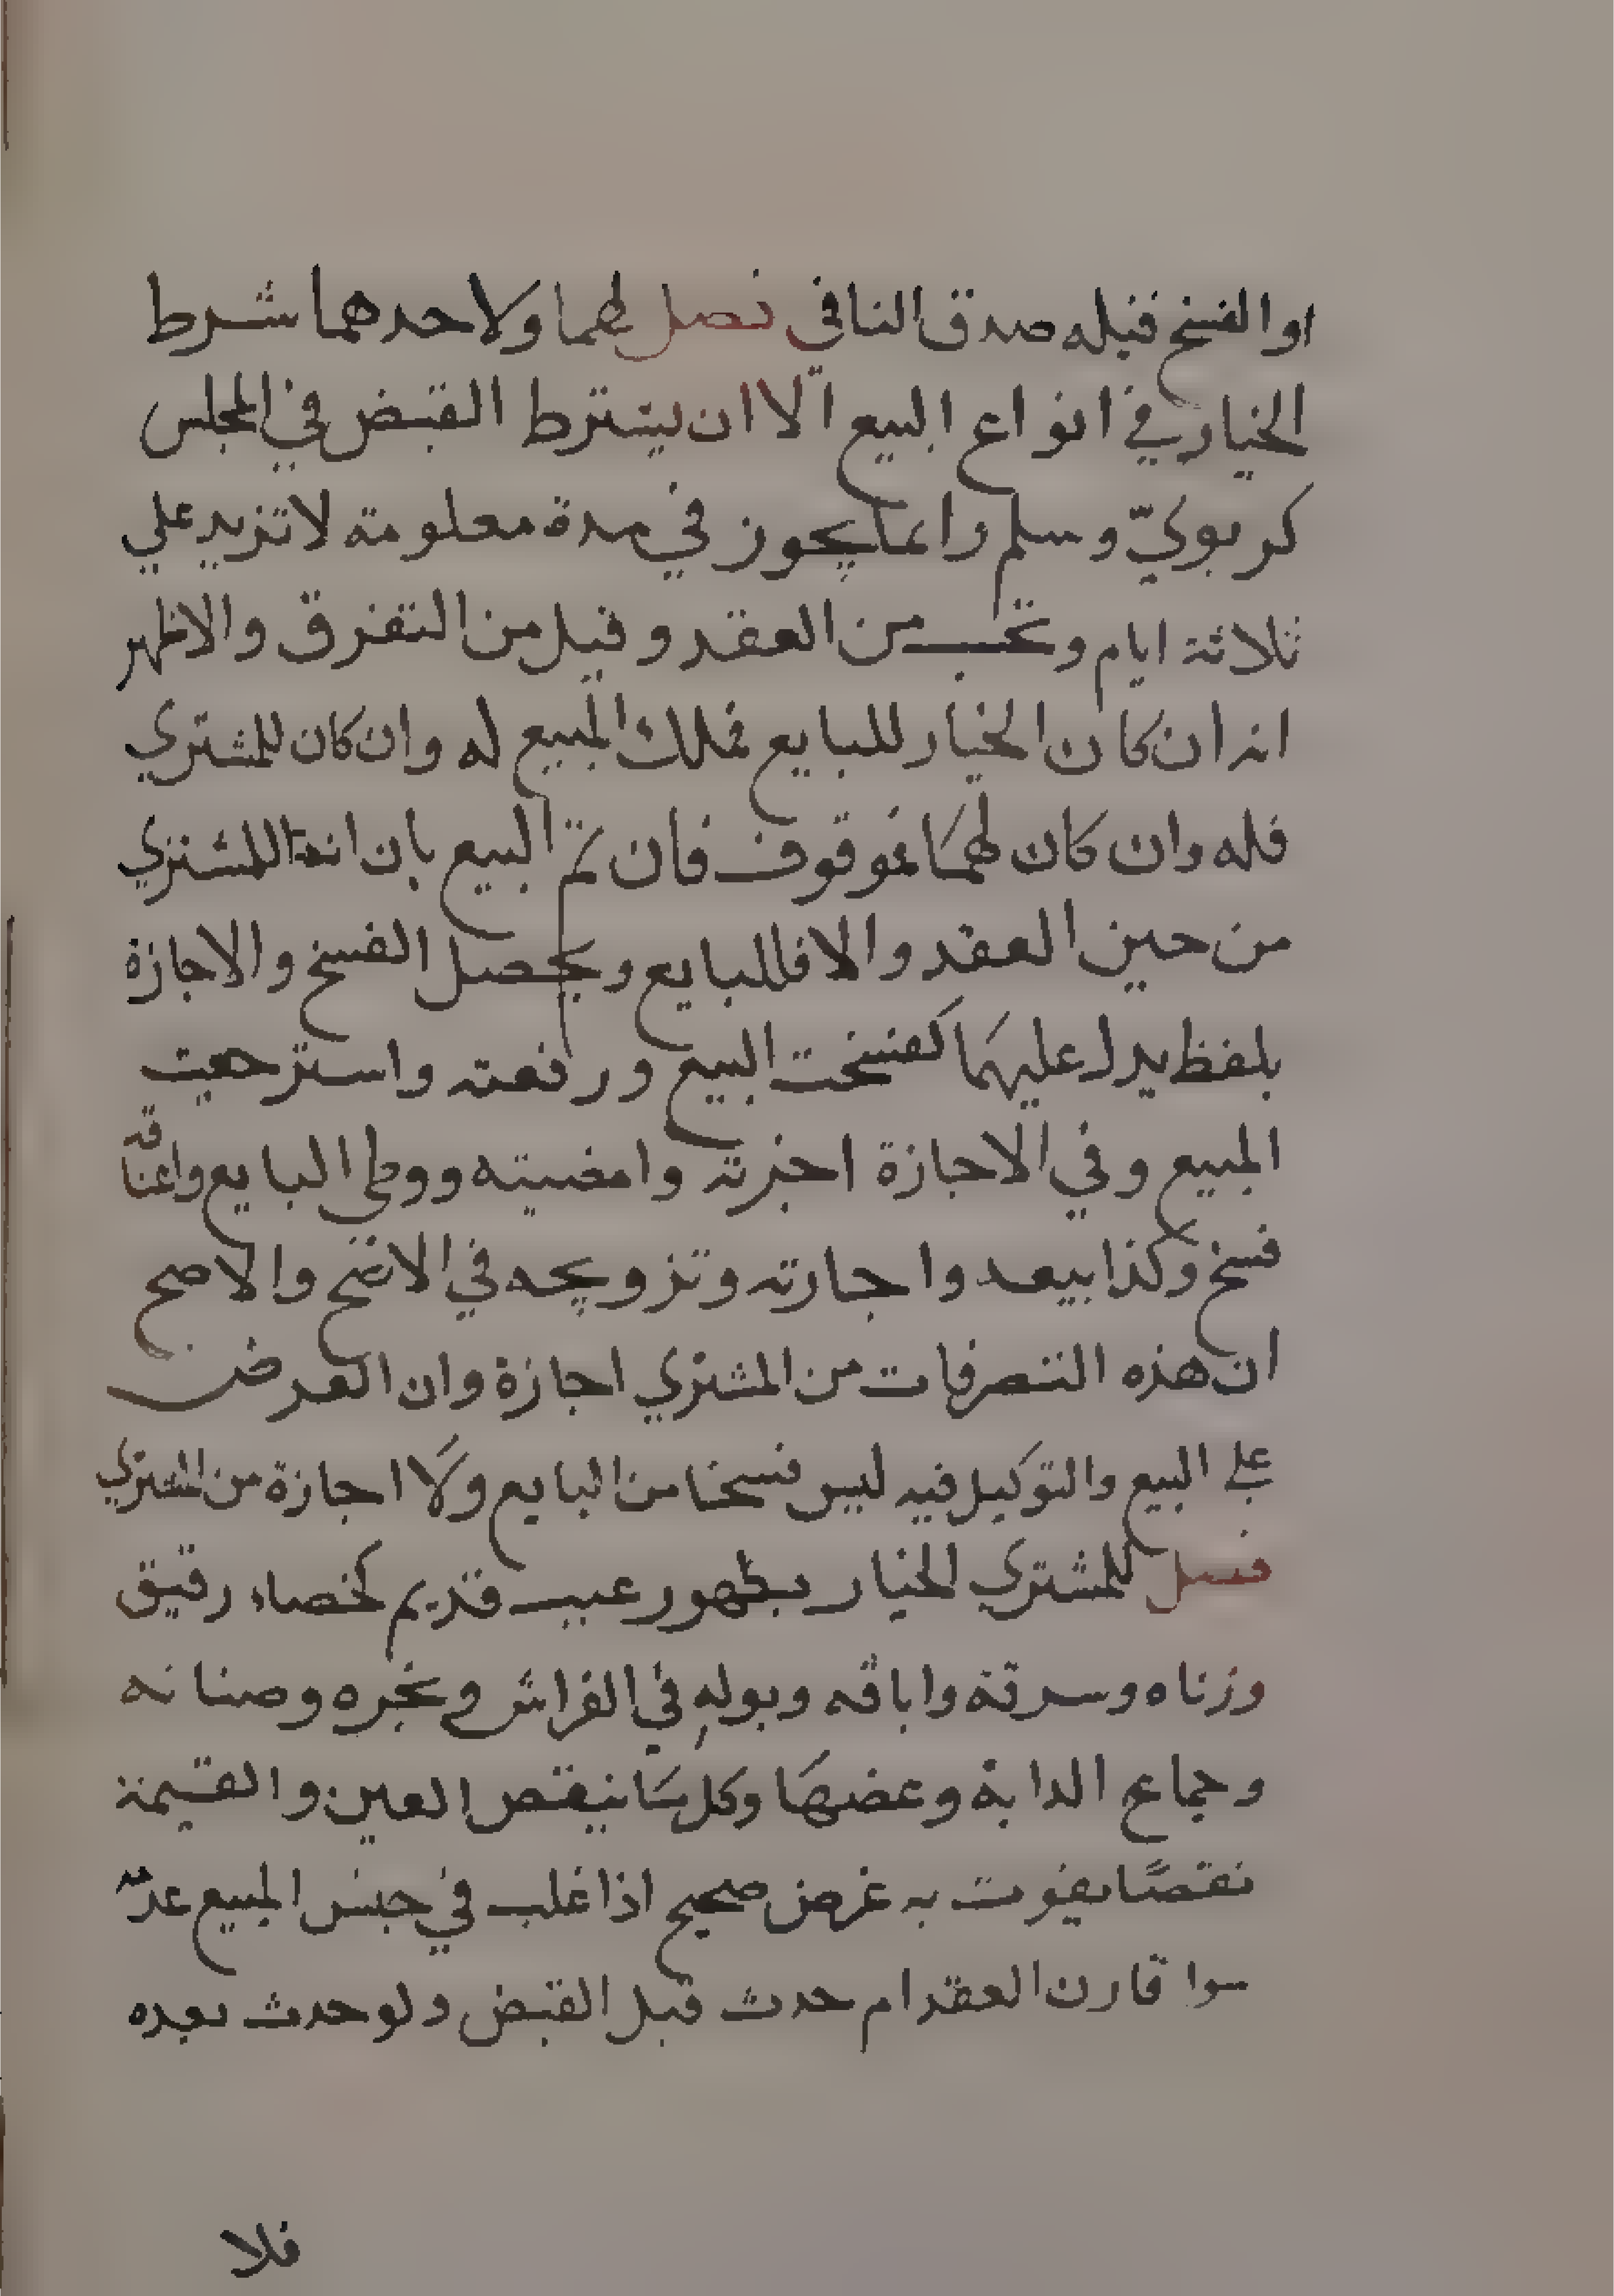 او الفسخ قبله صدق النافي فصل لهما ولاحدهما شرط
الخيار في انواع البيع الا ان يشترط القبض في المجلس
كربويّ وسلم وانما يجوز في مدة معلومة لا تزيد علي
ثلاثة ايام وتحسب من العقد وقيل من التفرق والاظهر
انه ان كان الخيار للبايع فملك المبيع له وان كان للمشتري
فله وان كان لهمَا فموقوف فان تم البيع بان انه للمشتري
من حين العقد والا فللبايع ويحصل الفسخ والاجازة
بلفظ يدل عليهمَا كفسخت البيع ورفعته واسترجعت
المبيع وفي الاجازة اجزته وامضيته ووطي البايع واعتاقه
فسخ وكذا بيعه واجارته وتزويجه في الاصح والاصح
ان هذه التصرفات من المشتري اجازة وان العرض
علي البيع والتوكيل فيه ليس فسخا من البايع ولَا اجازة من المشتري
فصل للمشتري الخيار بظهور عيب قديم كخصاء رقيق
وزناه وسرقة واباقه وبولهِ في الفراش وبخره وصنانه
وجماع الدابة وعضهَا وكل مَا ينقص العين والقيمة
نقصًا يفوت به غرض صحيح اذا غلب في جنس المبيع عدمه
سوا قارن العقد ام حدث قبل القبض ولو حدث بعده
فلا